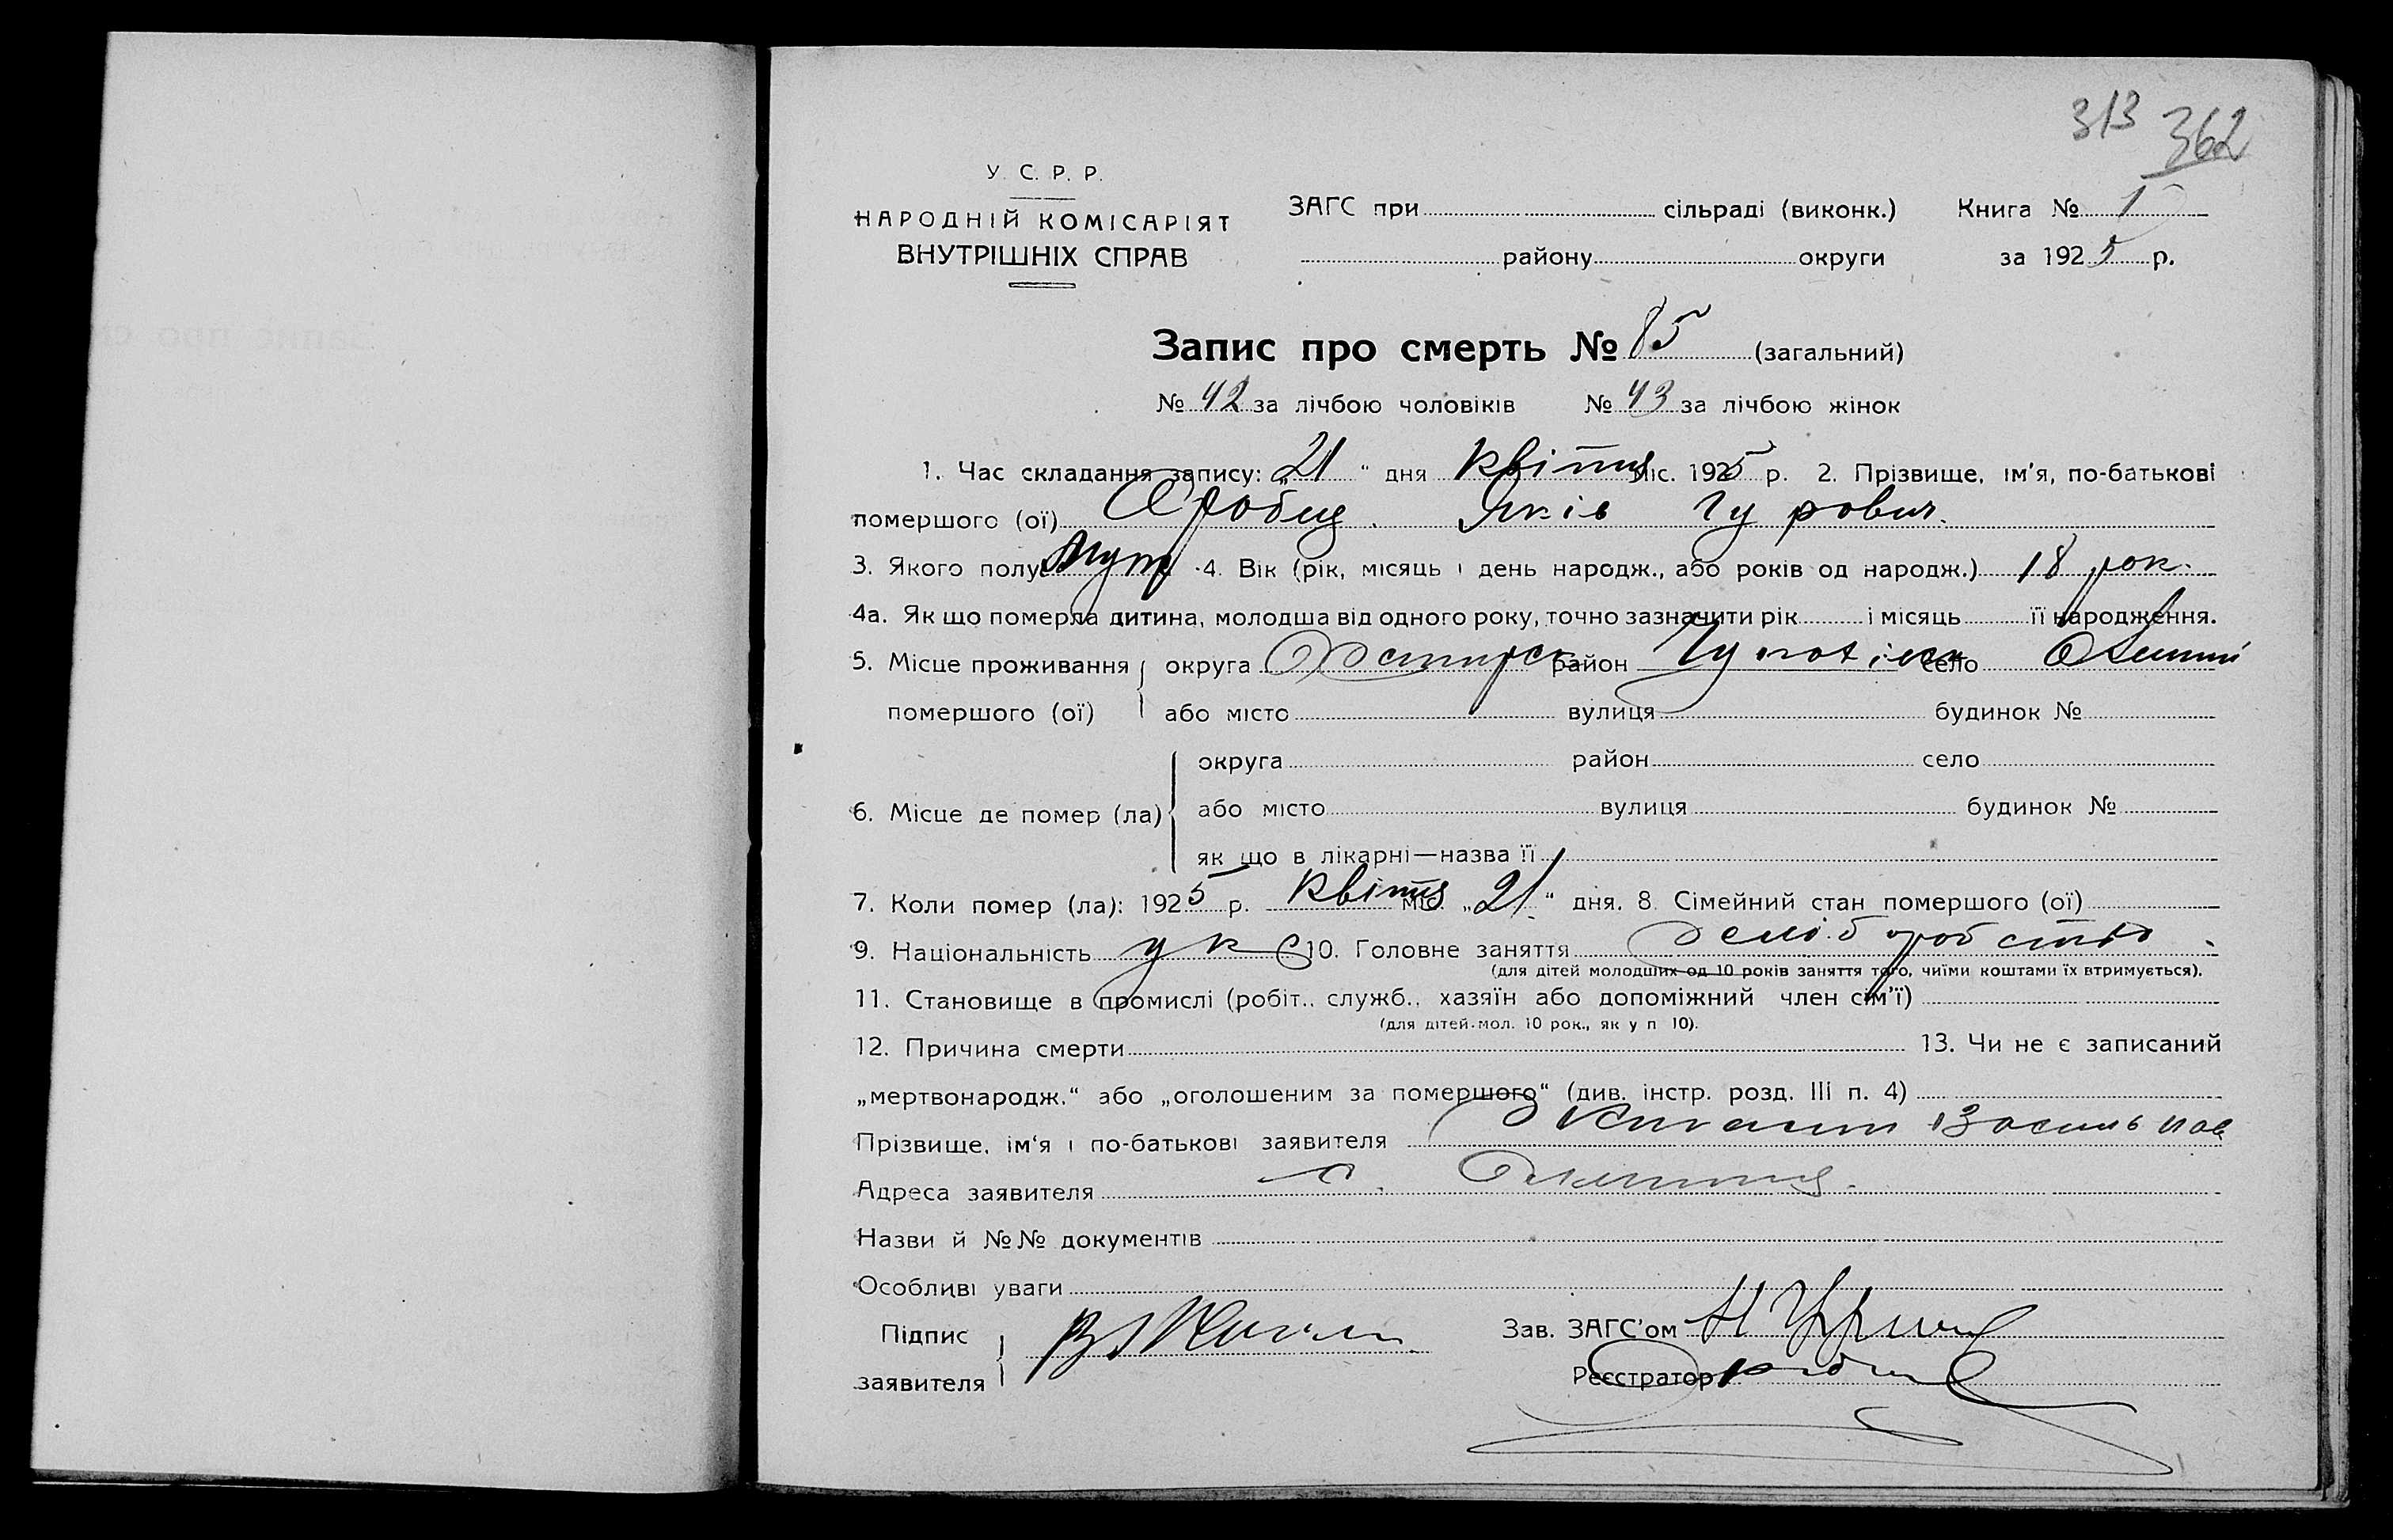 313 362
У. С. Р. Р.
НАРОДНІЙ КОМІСАРІЯТ
ВНУТРІШНІХ СПРАВ
ЗАГС при сільраді (виконк.) Книга № 1
району округи за 1925 р.
Запис про смерть № 85 (загальний)
№ 42 за лічбою чоловіків № 43 за лічбою жінок
1. Час складання запису: „21“ дня квітня міс. 1925 р. 2. Прізвище, ім'я, по-батькові
помершого (ої) Яків
3. Якого полу 4. Вік (рік, місяць і день народж., або років од народж.) 18 рок.
4а. Як що померла дитина, молодша від одного року, точно зазначити рік і місяць її народження.
5. Місце проживання округа район село
помершого (ої) або місто вулиця будинок №
округа район село
6. Місце де помер (ла) або місто вулиця будинок №
як що в лікарні—назва її
7. Коли помер (ла): 1925 р. квітня міс. „21“ дня. 8. Сімейний стан помершого (ої)
9. Національність укр 10. Головне заняття
(для дітей молодших од 10 років заняття того, чиїми коштами їх втримується).
11. Становище в промислі (робіт., служб., хазяїн або допоміжний член сім'ї)
(для дітей мол. 10 рок., як у п 10).
12. Причина смерти 13. Чи не є записаний
„мертвонародж.“ або „оголошеним за помершого“ (див. інстр. розд. III п. 4)
Прізвище, ім'я і по-батькові заявителя Василь
Адреса заявителя с.
Назви й №№ документів
Особливі уваги
Підпис
заявителя
Зав. ЗАГС'ом
Реєстратор